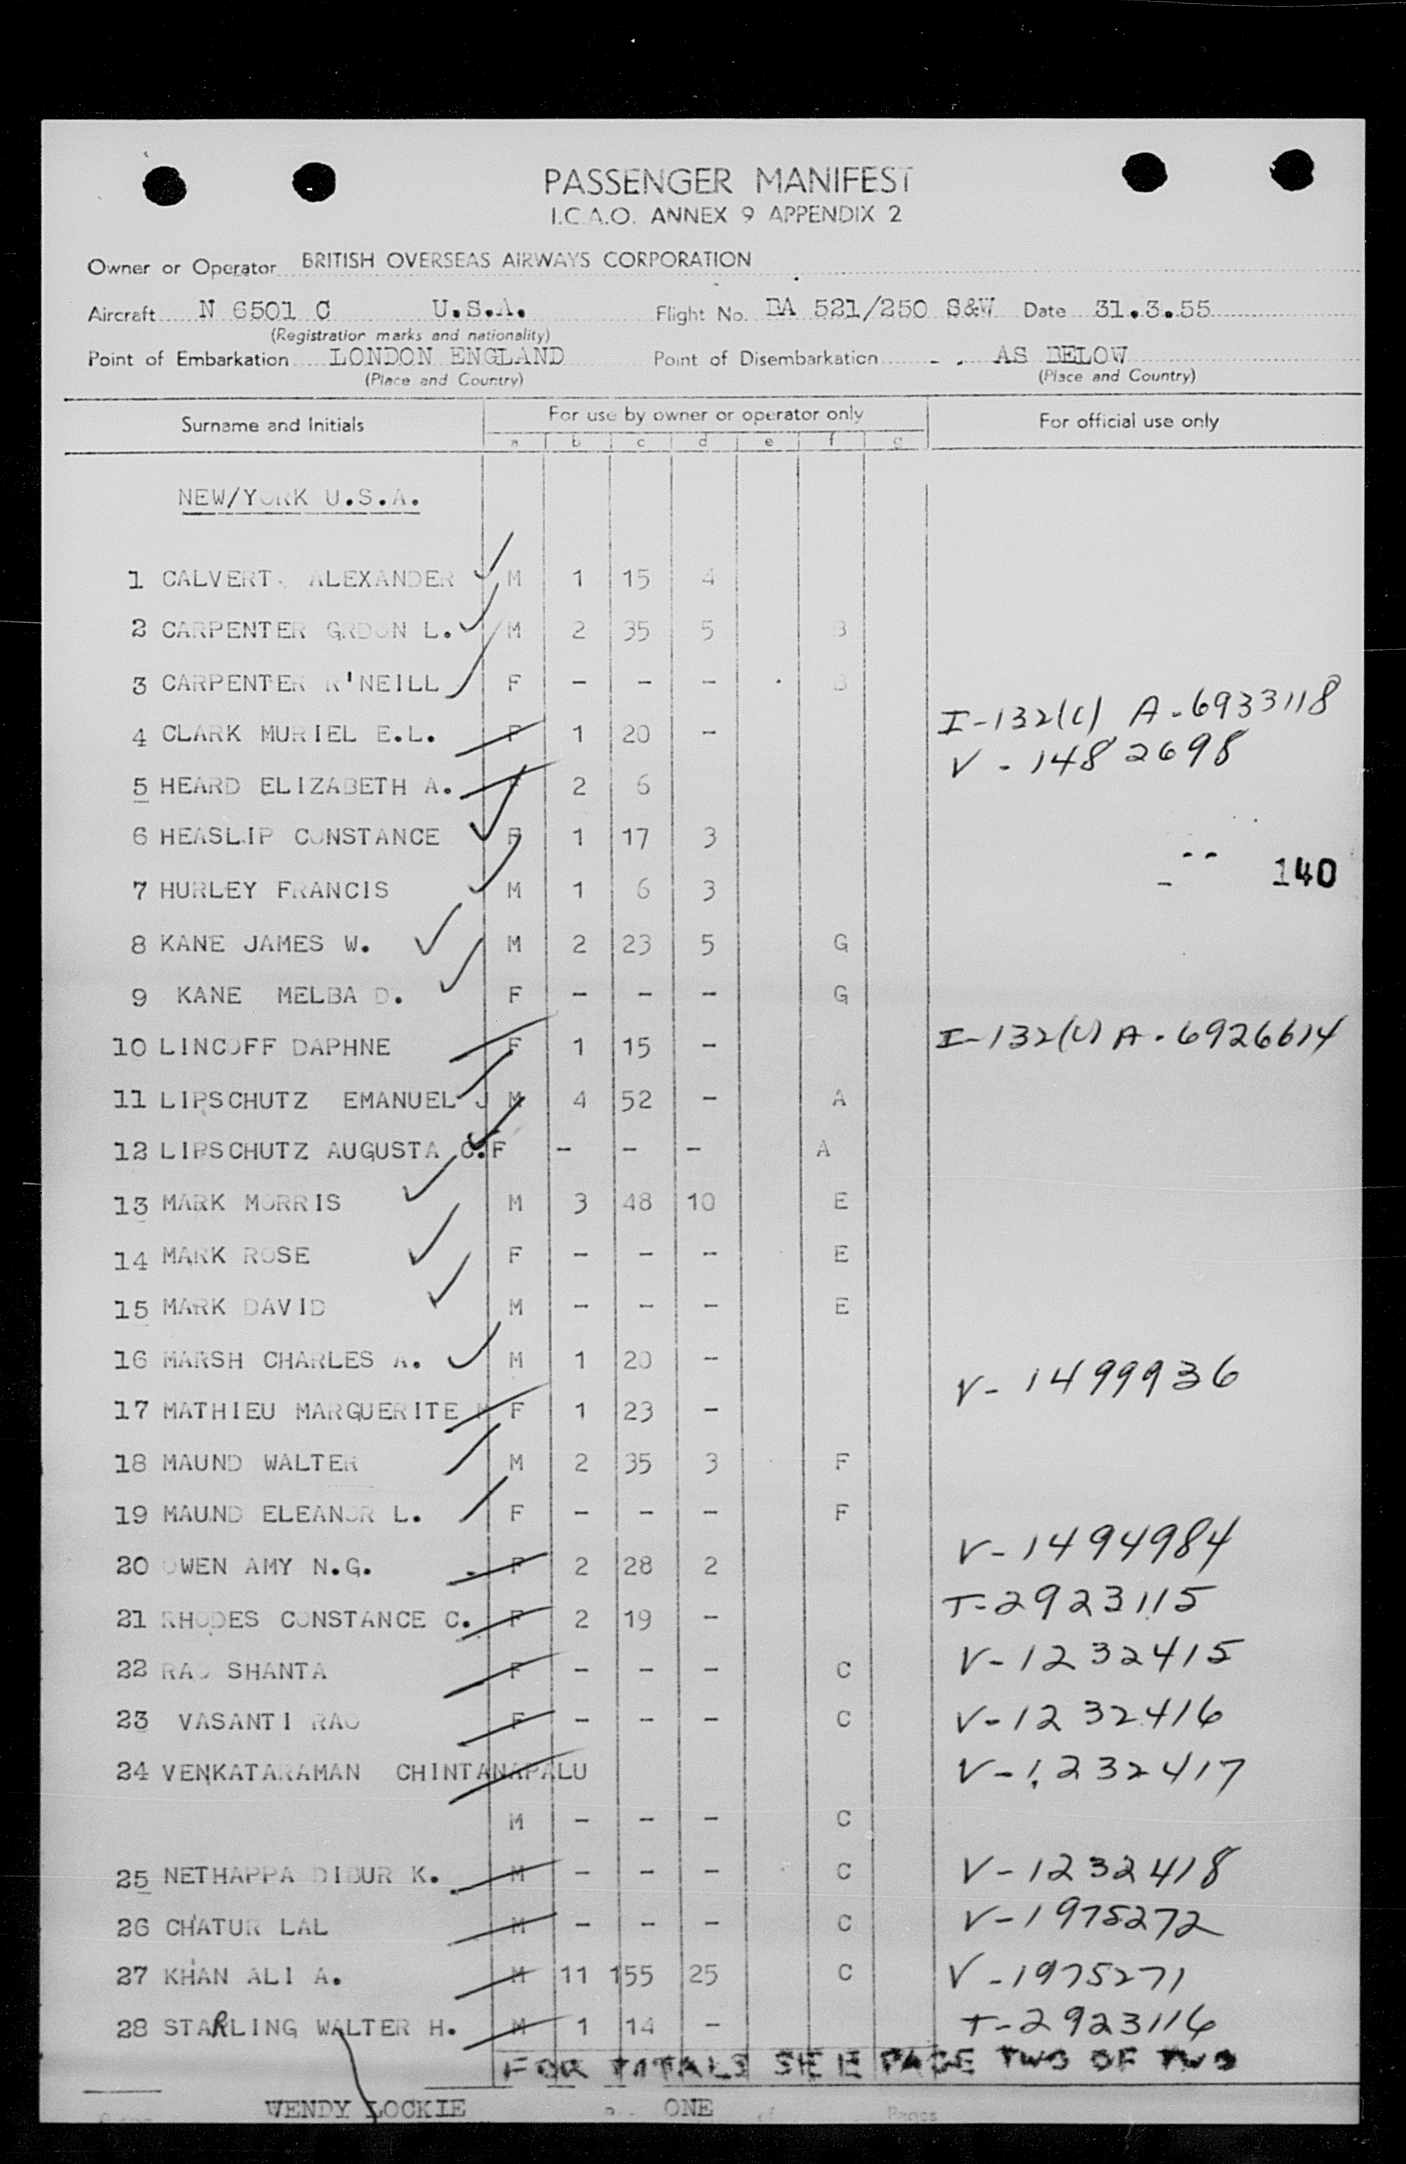 PASSENGER MANIFEST
I.C.A.O. ANNEX 9 APPENDIX 2
Owner or Operator BRITISH OVERSEAS AIRWAYS CORPORATION
Aircraft N 6501 C U.S.A. Flight No. BA 521/250 S&W Date 31.3.55
(Registration marks and nationality)
Point of Embarkation LONDON ENGLAND Point of Disembarkation - . AS BELOW
(Place and Country) (Place and Country)
Surname and Initials For use by owner or operator only For official use only
a b c d e f g
NEW/YORK U.S.A.
1 CALVERT. ALEXANDER M 1 15 4
2 CARPENTER GRDON L. M 2 35 5 B
3 CARPENTER R'NEILL F - - - B
4 CLARK MURIEL E.L. F 1 20 - I-132(C) A-6933118
5 HEARD ELIZABETH A. F 2 6 V-1482698
6 HEASLIP CONSTANCE F 1 17 3
7 HURLEY FRANCIS M 1 6 3 140
8 KANE JAMES W. M 2 23 5 G
9 KANE MELBA D. F - - - G
10 LINCOFF DAPHNE F 1 15 - I-132(C) A-6926614
11 LIPSCHUTZ EMANUEL J M 4 52 - A
12 LIPSCHUTZ AUGUSTA C. F - - - A
13 MARK MORRIS M 3 48 10 E
14 MARK ROSE F - - - E
15 MARK DAVID M - - - E
16 MARSH CHARLES A. M 1 20 -
17 MATHIEU MARGUERITE F 1 23 - V-1499936
18 MAUND WALTER M 2 35 3 F
19 MAUND ELEANOR L. F - - - F
20 OWEN AMY N.G. F 2 28 2 V-1494984
21 RHODES CONSTANCE C. F 2 19 - T-2923115
22 RAO SHANTA F - - - C V-1232415
23 VASANTI RAO F - - - C V-1232416
24 VENKATARAMAN CHINTANAPALU V-1232417
M - - - C
25 NETHAPPA DIBUR K. M - - - C V-1232418
26 CHATUR LAL M - - - C V-1975272
27 KHAN ALI A. M 11 155 25 C V-1975271
28 STARLING WALTER H. M 1 14 - T-2923116
FOR TOTALS SEE PAGE TWO OF TWO
WENDY LOCKIE ONE of Pages